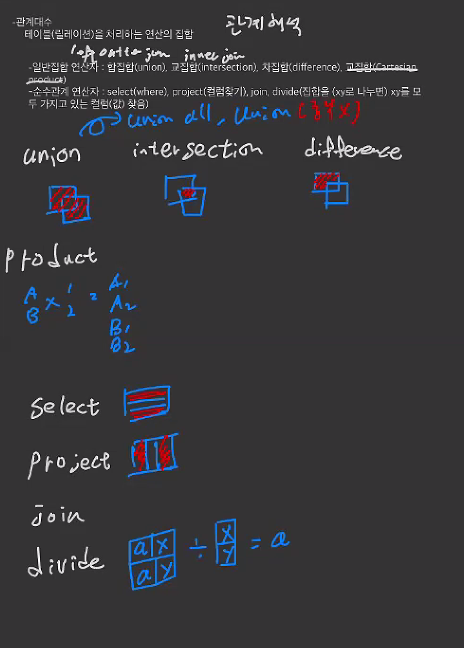 -관계대수
관계해석
테이블(릴레이션)을 처리하는 연산의 집합
left outter join inner join
-일반집합 연산자 : 합집합(union), 교집합(intersection), 차집합(difference), 곱집합(Cartesian
product)
-순수관계 연산자 : select(where), project(컬럼찾기), join, divide(집합을 (xy로 나누면) xy를 모
두 가지고 있는 컬럼(값) 찾음)
union all, union (중복x)
union intersection difference
product
A 1 = A1
B x 2 A2
B1
B2
select
project
join
divide
a x ÷ x = a
a y y